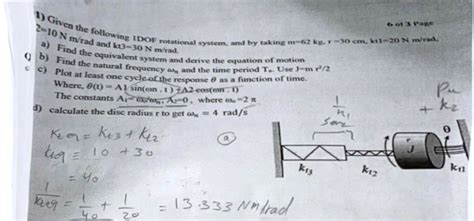 6 of 3 Page
1) Given the following 1DOF rotational system, and by taking m=62 kg, r=30 cm, kt1=20 N m/rad,
2=10 N m/rad and kt3=30 N m/rad.
a) Find the equivalent system and derive the equation of motion
Q b) Find the natural frequency ωn and the time period Tn. Use J=m r²/2
c c) Plot at least one cycle of the response θ as a function of time.
Where, θ(t)= A1 sin(ωn . t) +A2 cos(ωn . t)
The constants A1= ω₀/ωn, A2=0, where ω₀=2 π
d) calculate the disc radius r to get ωn = 4 rad/s
Kteq = Kt3 + kt2
kteq = 10 + 30
= 40
1/kteq = 1/40 + 1/20 = 13.333 Nm/rad
a
+ k2
θ
J
kt3
kt2
kt1